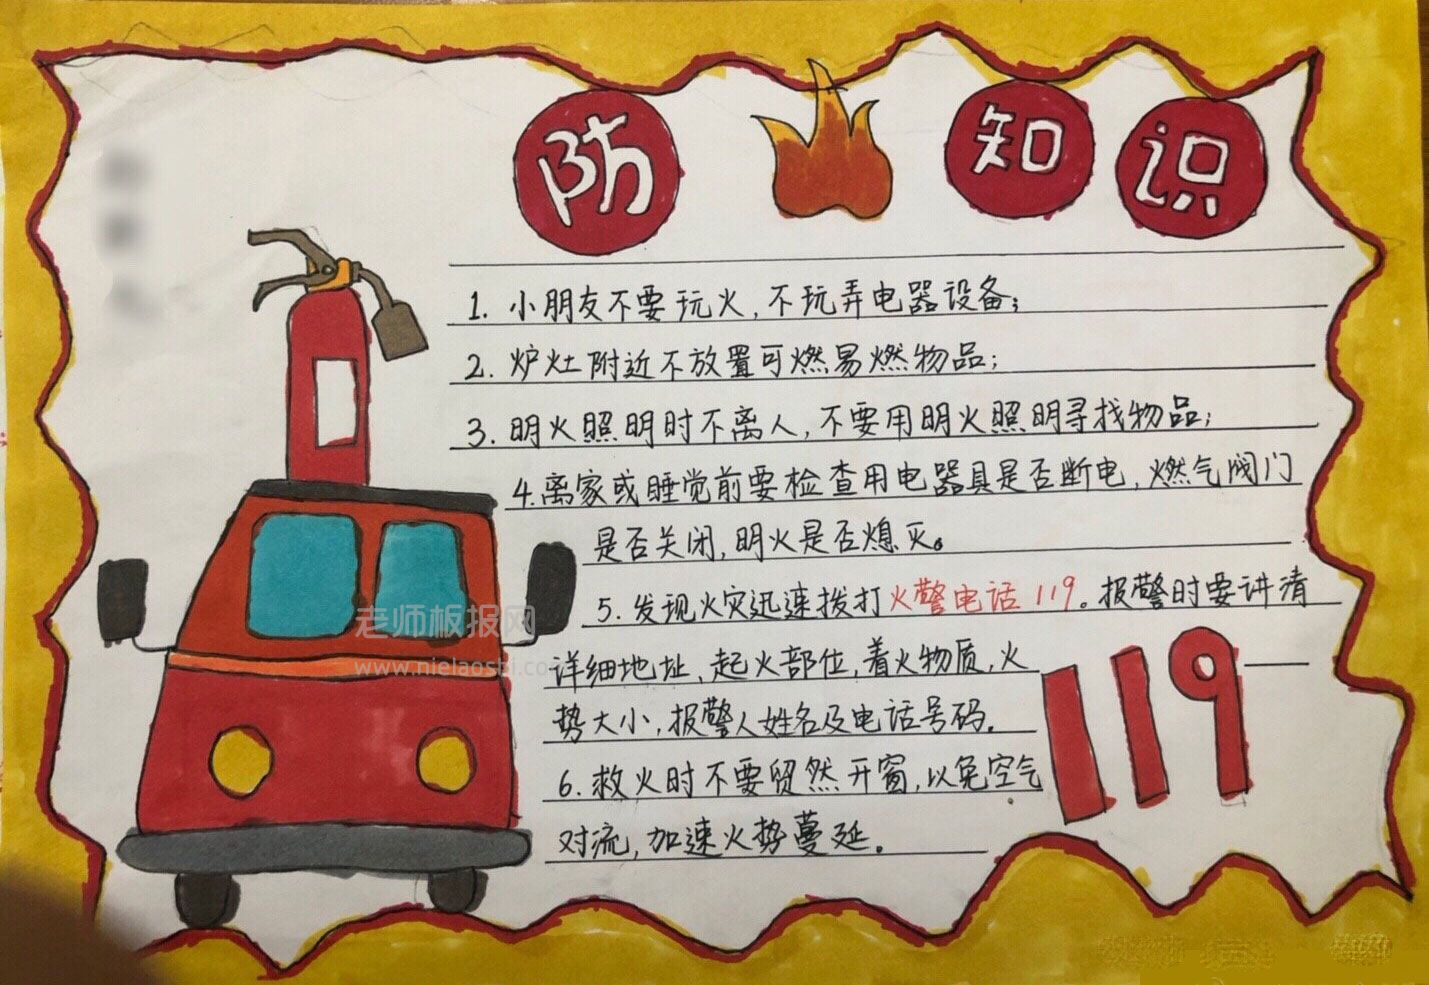 防 知识
1. 小朋友不要玩火,不玩弄电器设备;
2. 炉灶附近不放置可燃易燃物品;
3. 明火照明时不离人,不要用明火照明寻找物品;
4. 离家或睡觉前要检查用电器具是否断电,燃气阀门
是否关闭,明火是否熄灭。
5. 发现火灾迅速拨打火警电话119。报警时要讲清
详细地址、起火部位,着火物质,火
势大小,报警人姓名及电话号码。
6. 救火时不要贸然开窗,以免空气
对流,加速火势蔓延。
119
老师板报网
www.nielaoshi.com